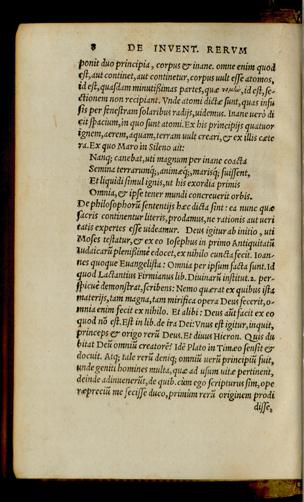 8 DE INVENT. RERVM
ponit duo principia, corpus & inane. omne enim quod
est, aut continet, aut continetur, corpus uult esse atomos,
id est, quasdam minutißimas partes, quæ τομὴν, id est, se-
ctionem non recipiant. Vnde atomi dictæ sunt, quas infu
sis per fenestram solaribus radijs, uidemus. Inane uerò di
cit spacium, in quo sunt atomi. Ex his principijs quatuor
ignem, aërem, aquam, terram uult creari, & ex illis cæte
ra. Ex quo Maro in Sileno ait:
Nanq; canebat, uti magnum per inane coacta
Semina terrarumq́;, animæq́;, marisq́; fuissent,
Et liquidi simul ignis, ut his exordia primis
Omnia, & ipse tener mundi concreuerit orbis.
De philosophorũ sententijs hæc dicta sint: ea nunc quæ
sacris continentur literis, prodamus, ne rationis aut ueri
tatis expertes esse uideamur. Deus igitur ab initio, uti
Moses testatur, & ex eo Iosephus in primo Antiquitatũ
Iudaicarũ plenißimè edocet, ex nihilo cuncta fecit. Ioan-
nes quoque Euangelista: Omnia per ipsum facta sunt. Id
quod Lactantius Firmianus lib. Diuinarũ institut. 2. per-
spicuè demonstrat, scribens: Nemo quærat ex quibus istã
materijs, tam magna, tam mirifica opera Deus fecerit, o-
mnia enim fecit ex nihilo. Et alibi: Deus aũt facit ex eo
quod nõ est. Est in lib. de ira Dei: Vnus est igitur, inquit,
princeps & origo rerũ Deus. Et diuus Hieron. Quis du
bitat Deũ omniũ creatorẽ? Idẽ Plato in Timæo sensit &
docuit. Atq; tale rerũ deniq; omniũ uerũ principiũ fuit,
unde geniti homines multa, quæ ad usum uitæ pertinent,
deinde adinuenerũt, de quib. cùm ego scripturus sim, ope
ræpreciũ me fecisse duco, primùm rerũ originem prodi
disse,